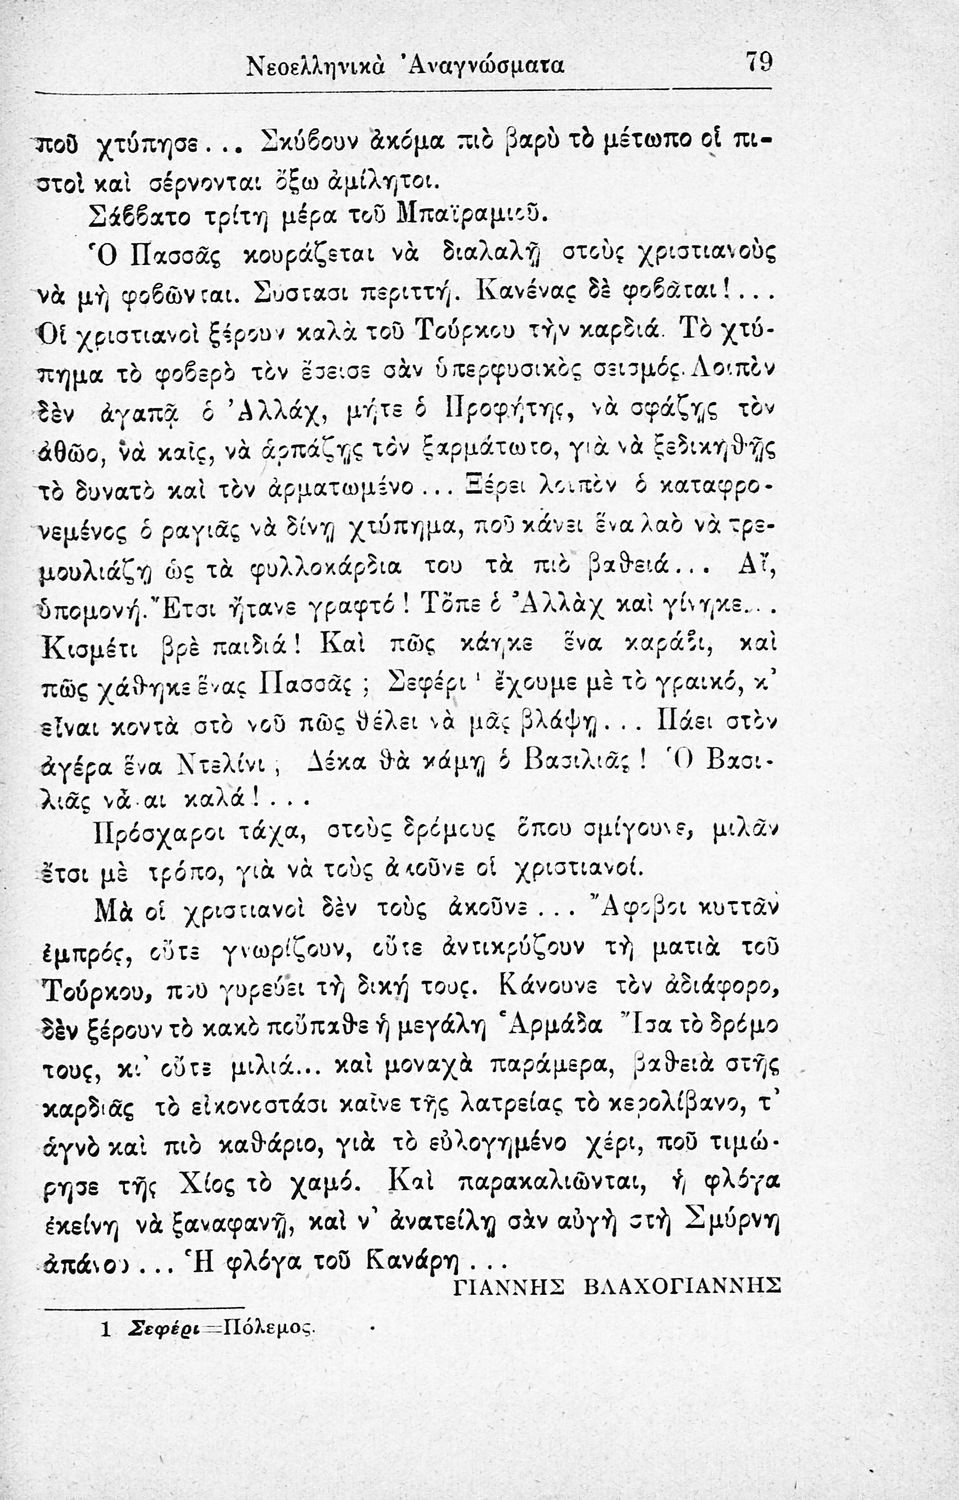 Νεοελληνικὰ Ἀναγνώσματα 79
ποῦ χτύπησε... Σκύβουν ἀκόμα πιὸ βαρὺ τὸ μέτωπο οἱ πι-
στοὶ καὶ σέρνονται ὄξω ἀμίλητοι.
Σάββατο τρίτη μέρα τοῦ Μπαϊραμιοῦ.
Ὁ Πασσᾶς κουράζεται νὰ διαλαλῇ στοὺς χριστιανοὺς
νὰ μὴ φοβῶνται. Σύστασι περιττή. Κανένας δὲ φοβᾶται!...
Οἱ χριστιανοὶ ξέρουν καλὰ τοῦ Τούρκου τὴν καρδιά. Τὸ χτύ-
πημα τὸ φοβερὸ τὸν ἔσεισε σὰν ὑπερφυσικὸς σεισμός. Λοιπὸν
δὲν ἀγαπᾷ ὁ Ἀλλάχ, μήτε ὁ Προφήτης, νὰ σφάζῃς τὸν
ἀθῶο, νὰ καῖς, νὰ ἁρπάζῃς τὸν ξαρμάτωτο, γιὰ νὰ ξεδικηθῇς
τὸ δυνατὸ καὶ τὸν ἀρματωμένο... Ξέρει λοιπὸν ὁ καταφρο-
νεμένος ὁ ραγιᾶς νὰ δίνῃ χτύπημα, ποῦ κάνει ἕνα λαὸ νὰ τρε-
μουλιάζῃ ὡς τὰ φυλλοκάρδια του τὰ πιὸ βαθειά... Αἴ,
ὑπομονή. Ἔτσι ἤτανε γραφτό! Τὄπε ὁ Ἀλλὰχ καὶ γίνηκε...
Κισμέτι βρὲ παιδιά! Καὶ πῶς κάηκε ἕνα καράβι, καὶ
πῶς χάθηκε ἕνας Πασσᾶς; Σεφέρι ¹ ἔχουμε μὲ τὸ γραικό, κ᾽
εἶναι κοντὰ στὸ νοῦ πῶς θέλει νὰ μᾶς βλάψῃ... Πάει στὸν
ἀγέρα ἕνα Ντελίνι, Δέκα θὰ κάμῃ ὁ Βασιλιᾶς! Ὁ Βασι-
λιᾶς νἆ αι καλά!...
Πρόσχαροι τάχα, στοὺς δρόμους ὅπου σμίγουνε, μιλᾶν
ἔτσι μὲ τρόπο, γιὰ νὰ τοὺς ἀκοῦνε οἱ χριστιανοί.
Μὰ οἱ χριστιανοὶ δὲν τοὺς ἀκοῦνε... Ἄφοβοι κυττᾶν
ἐμπρός, οὔτε γνωρίζουν, οὔτε ἀντικρύζουν τὴ ματιὰ τοῦ
Τούρκου, ποὺ γυρεύει τὴ δική τους. Κάνουνε τὸν ἀδιάφορο,
δὲν ξέρουν τὸ κακὸ ποὔπαθε ἡ μεγάλη Ἁρμάδα Ἴσα τὸ δρόμο
τους, κι᾽ οὔτε μιλιά... καὶ μοναχὰ παράμερα, βαθειὰ στῆς
καρδιᾶς τὸ εἰκονοστάσι καῖνε τῆς λατρείας τὸ κερολίβανο, τ᾽
ἁγνὸ καὶ πιὸ καθάριο, γιὰ τὸ εὐλογημένο χέρι, ποῦ τιμώ-
ρησε τῆς Χίος τὸ χαμό. Καὶ παρακαλιῶνται, ἡ φλόγα
ἐκείνη νὰ ξαναφανῇ, καὶ ν᾽ ἀνατείλῃ σὰν αὐγὴ στὴ Σμύρνη
ἀπάνου... Ἡ φλόγα τοῦ Κανάρη...
ΓΙΑΝΝΗΣ ΒΛΑΧΟΓΙΑΝΝΗΣ
1 Σεφέρι=Πόλεμος.